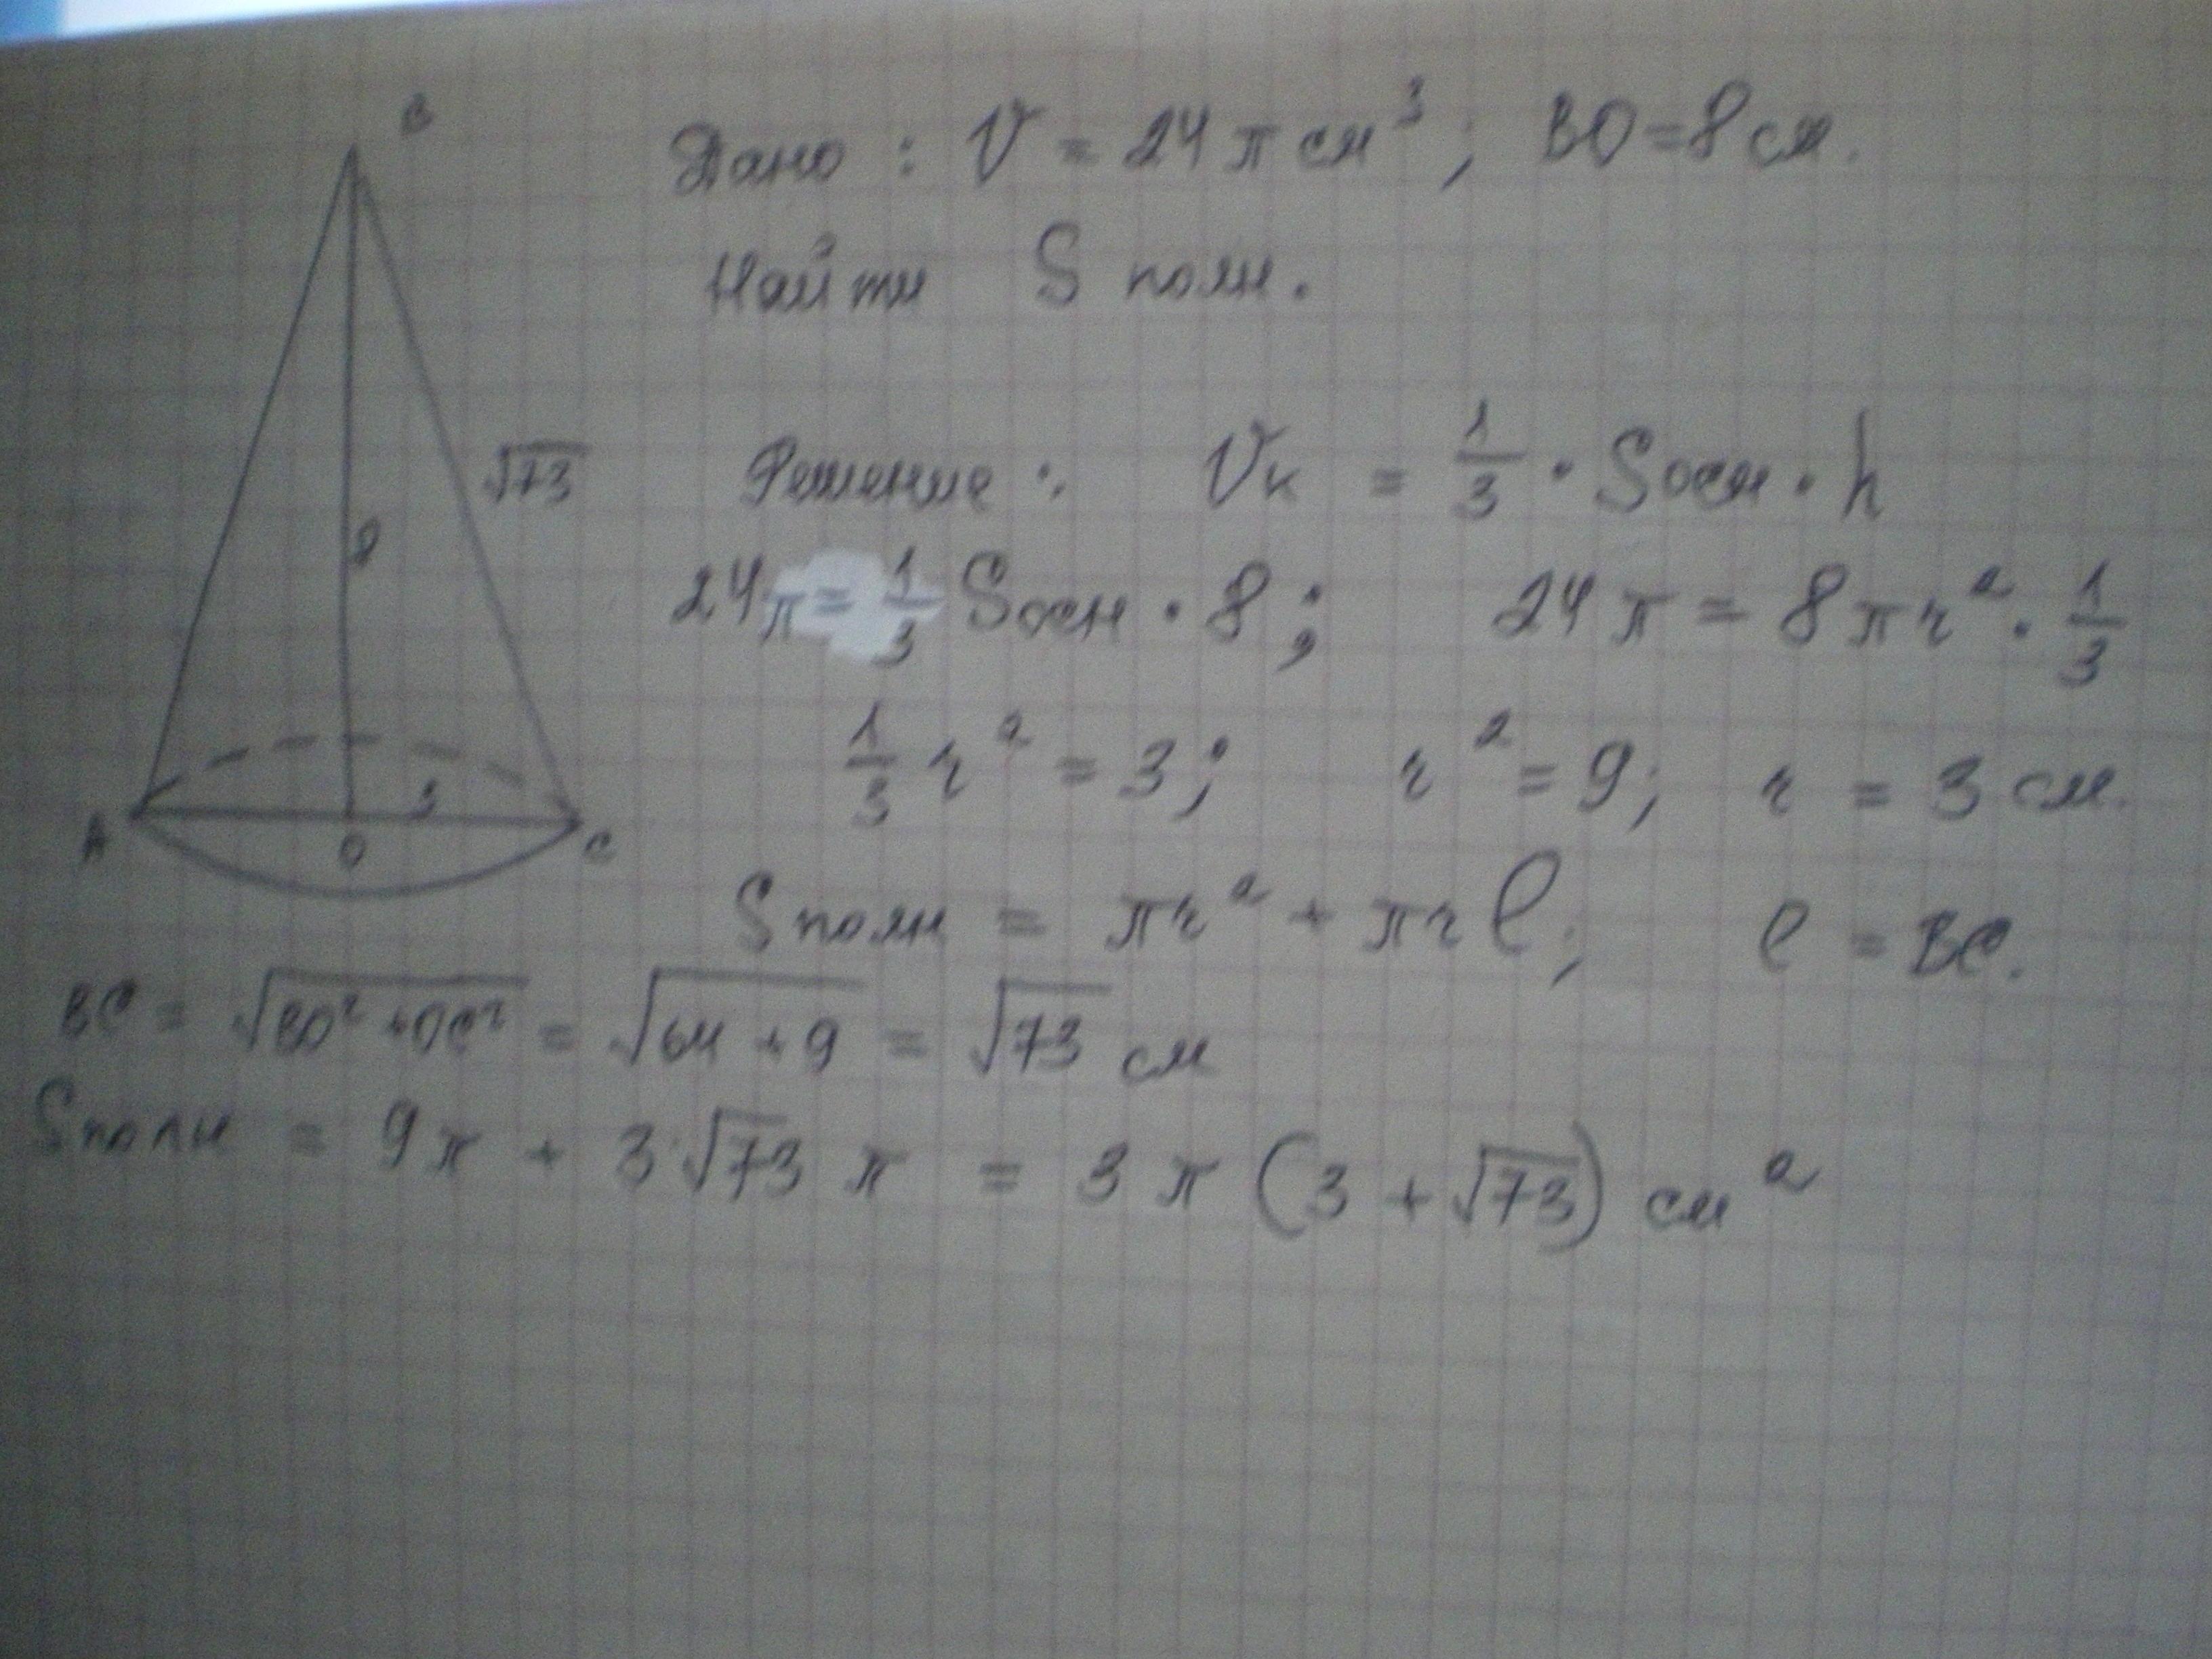 B
Дано : V = 24 π см³ ; BO = 8 см.
Найти S полн.
√73
Решение : Vк = 1/3 · Sосн · h
8
24π = 1/3 Sосн · 8 ; 24 π = 8 π r² · 1/3
1/3 r² = 3 ; r² = 9 ; r = 3 см.
3
A O C
Sполн = πr² + πrl ; l = BC.
BC = √BO² + OC² = √64 + 9 = √73 см
Sполн = 9π + 3√73 π = 3 π (3 + √73) см²